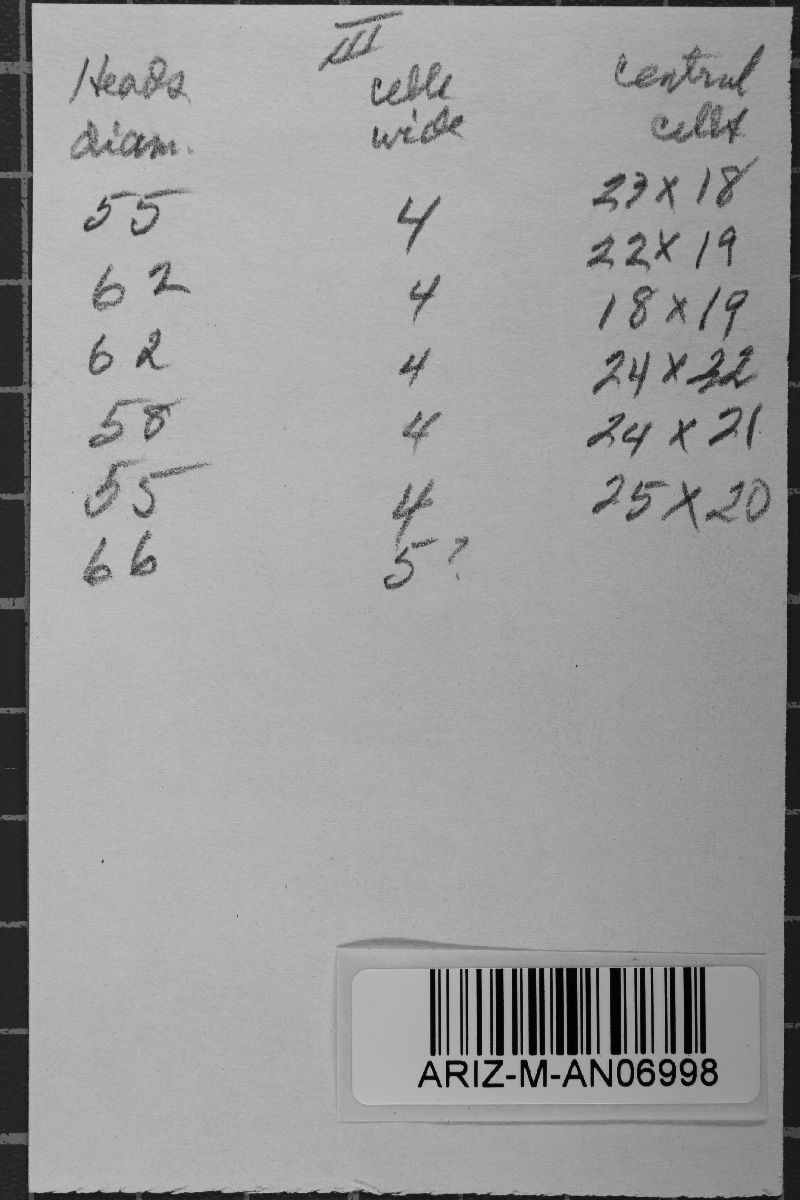 III
Heads cells central
diam. wide cells
55 4 23 x 18
62 4 22 x 19
62 4 18 x 19
58 4 24 x 22
55 4 24 x 21
66 5? 25 x 20
ARIZ-M-AN06998